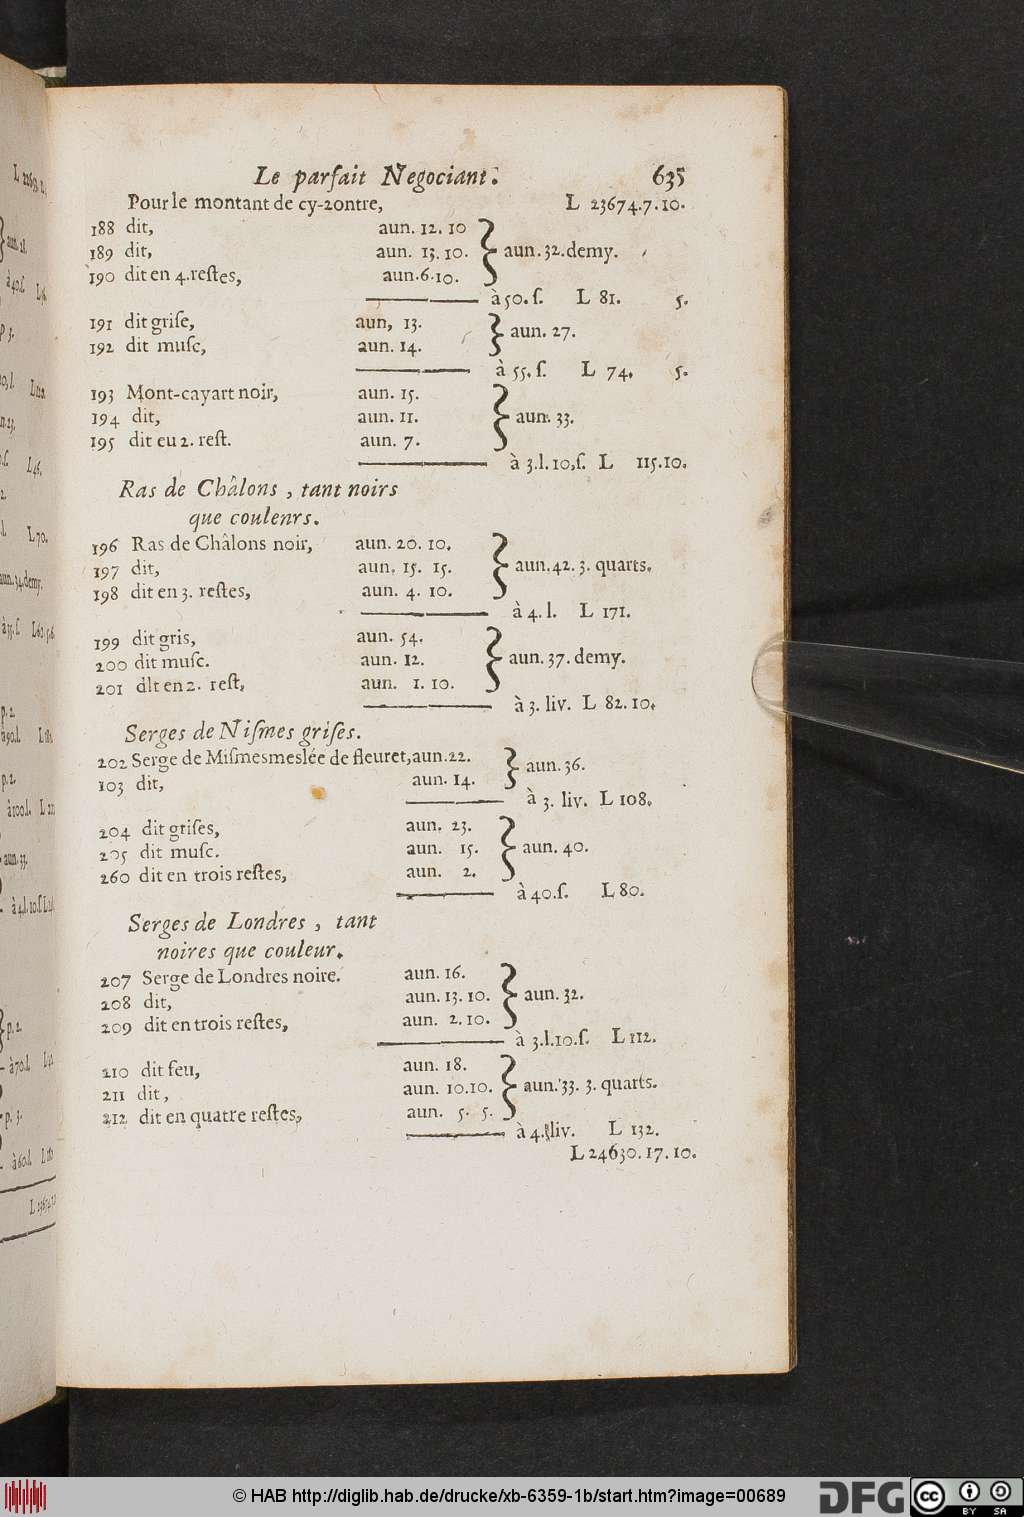 Le parfait Negociant. 635
Pour le montant de cy-2ontre, L 23674.7.10.
188 dit, aun. 12. 10
189 dit, aun. 13. 10. aun. 32. demy.
190 dit en 4. reſtes, aun. 6. 10.
à 50. ſ. L 81. 5.
191 dit griſe, aun, 13. aun. 27.
192 dit muſc, aun. 14.
à 55. ſ. L 74. 5.
193 Mont-cayart noir, aun. 15.
194 dit, aun. 11. aun. 33.
195 dit eu 2. reſt. aun. 7.
à 3. l. 10. ſ. L 115.10.
Ras de Châlons, tant noirs
que coulenrs.
196 Ras de Châlons noir, aun. 20. 10.
197 dit, aun. 15. 15. aun. 42. 3. quarts.
198 dit en 3. reſtes, aun. 4. 10.
à 4. l. L 171.
199 dit gris, aun. 54.
200 dit muſc. aun. 12. aun. 37. demy.
201 dlt en 2. reſt, aun. 1. 10.
à 3. liv. L 82. 10.
Serges de Niſmes griſes.
202 Serge de Miſmesmeslée de fleuret, aun. 22. aun. 36.
103 dit, aun. 14.
à 3. liv. L 108.
204 dit griſes, aun. 23.
205 dit muſc. aun. 15. aun. 40.
260 dit en trois reſtes, aun. 2.
à 40. ſ. L 80.
Serges de Londres, tant
noires que couleur.
207 Serge de Londres noire. aun. 16.
208 dit, aun. 13. 10. aun. 32.
209 dit en trois reſtes, aun. 2. 10.
à 3. l. 10. ſ. L 112.
210 dit feu, aun. 18.
211 dit, aun. 10. 10. aun. 33. 3. quarts.
212 dit en quatre reſtes, aun. 5. 5.
à 4. liv. L 132.
L 24630. 17. 10.
© HAB http://diglib.hab.de/drucke/xb-6359-1b/start.htm?image=00689
DFG cc BY SA